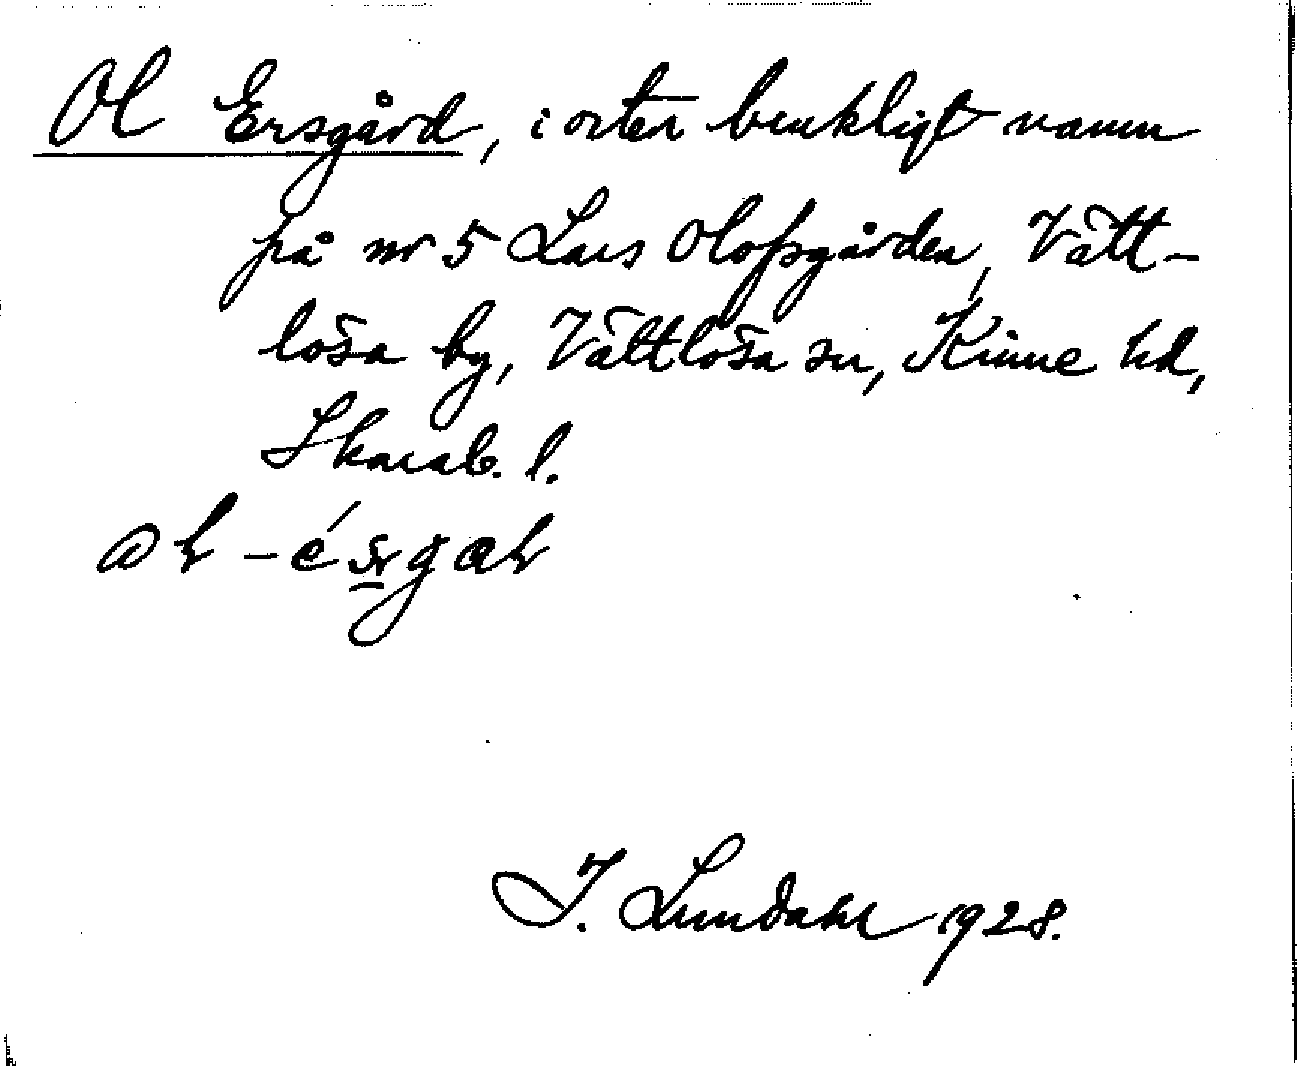 Ol Ersgård, i orten brukligt namn
på nr 5 Lars Olofsgården, Vätt-
lösa by, Vättlösa sn, Kinne hd,
Skarab. l.
I. Lundahl 1928.